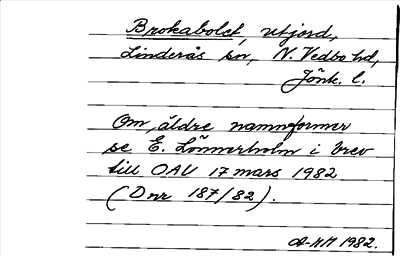 Brokabolet, utjord,
Linderås sn, N. Vedbo hd,
Jönk. l.
Om äldre namnformer
se E. Lönnerholm i brev
till OAU 17 mars 1982
(Dnr 187/82).
1982.